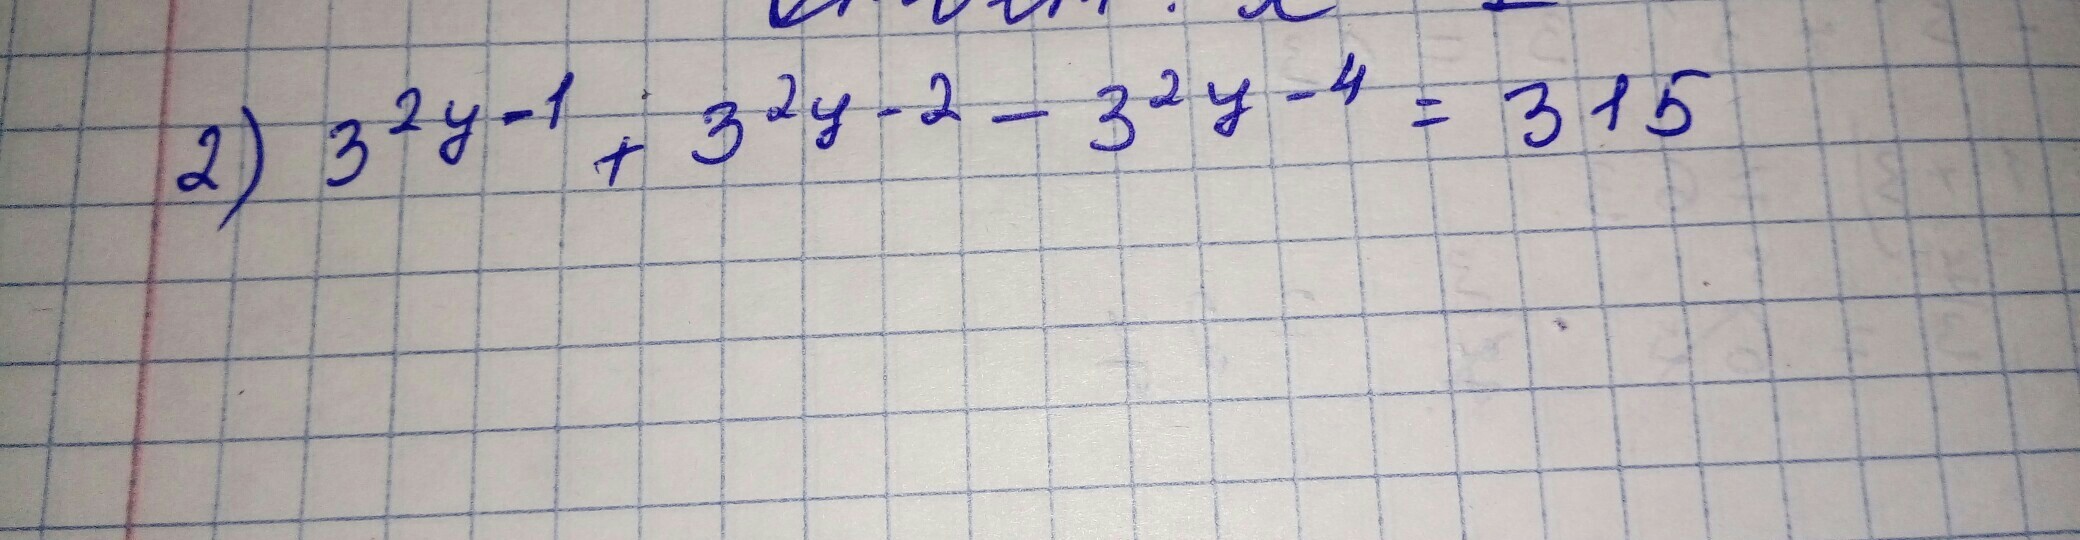 2) 3^{2y-1} + 3^{2y-2} - 3^{2y-4} = 315